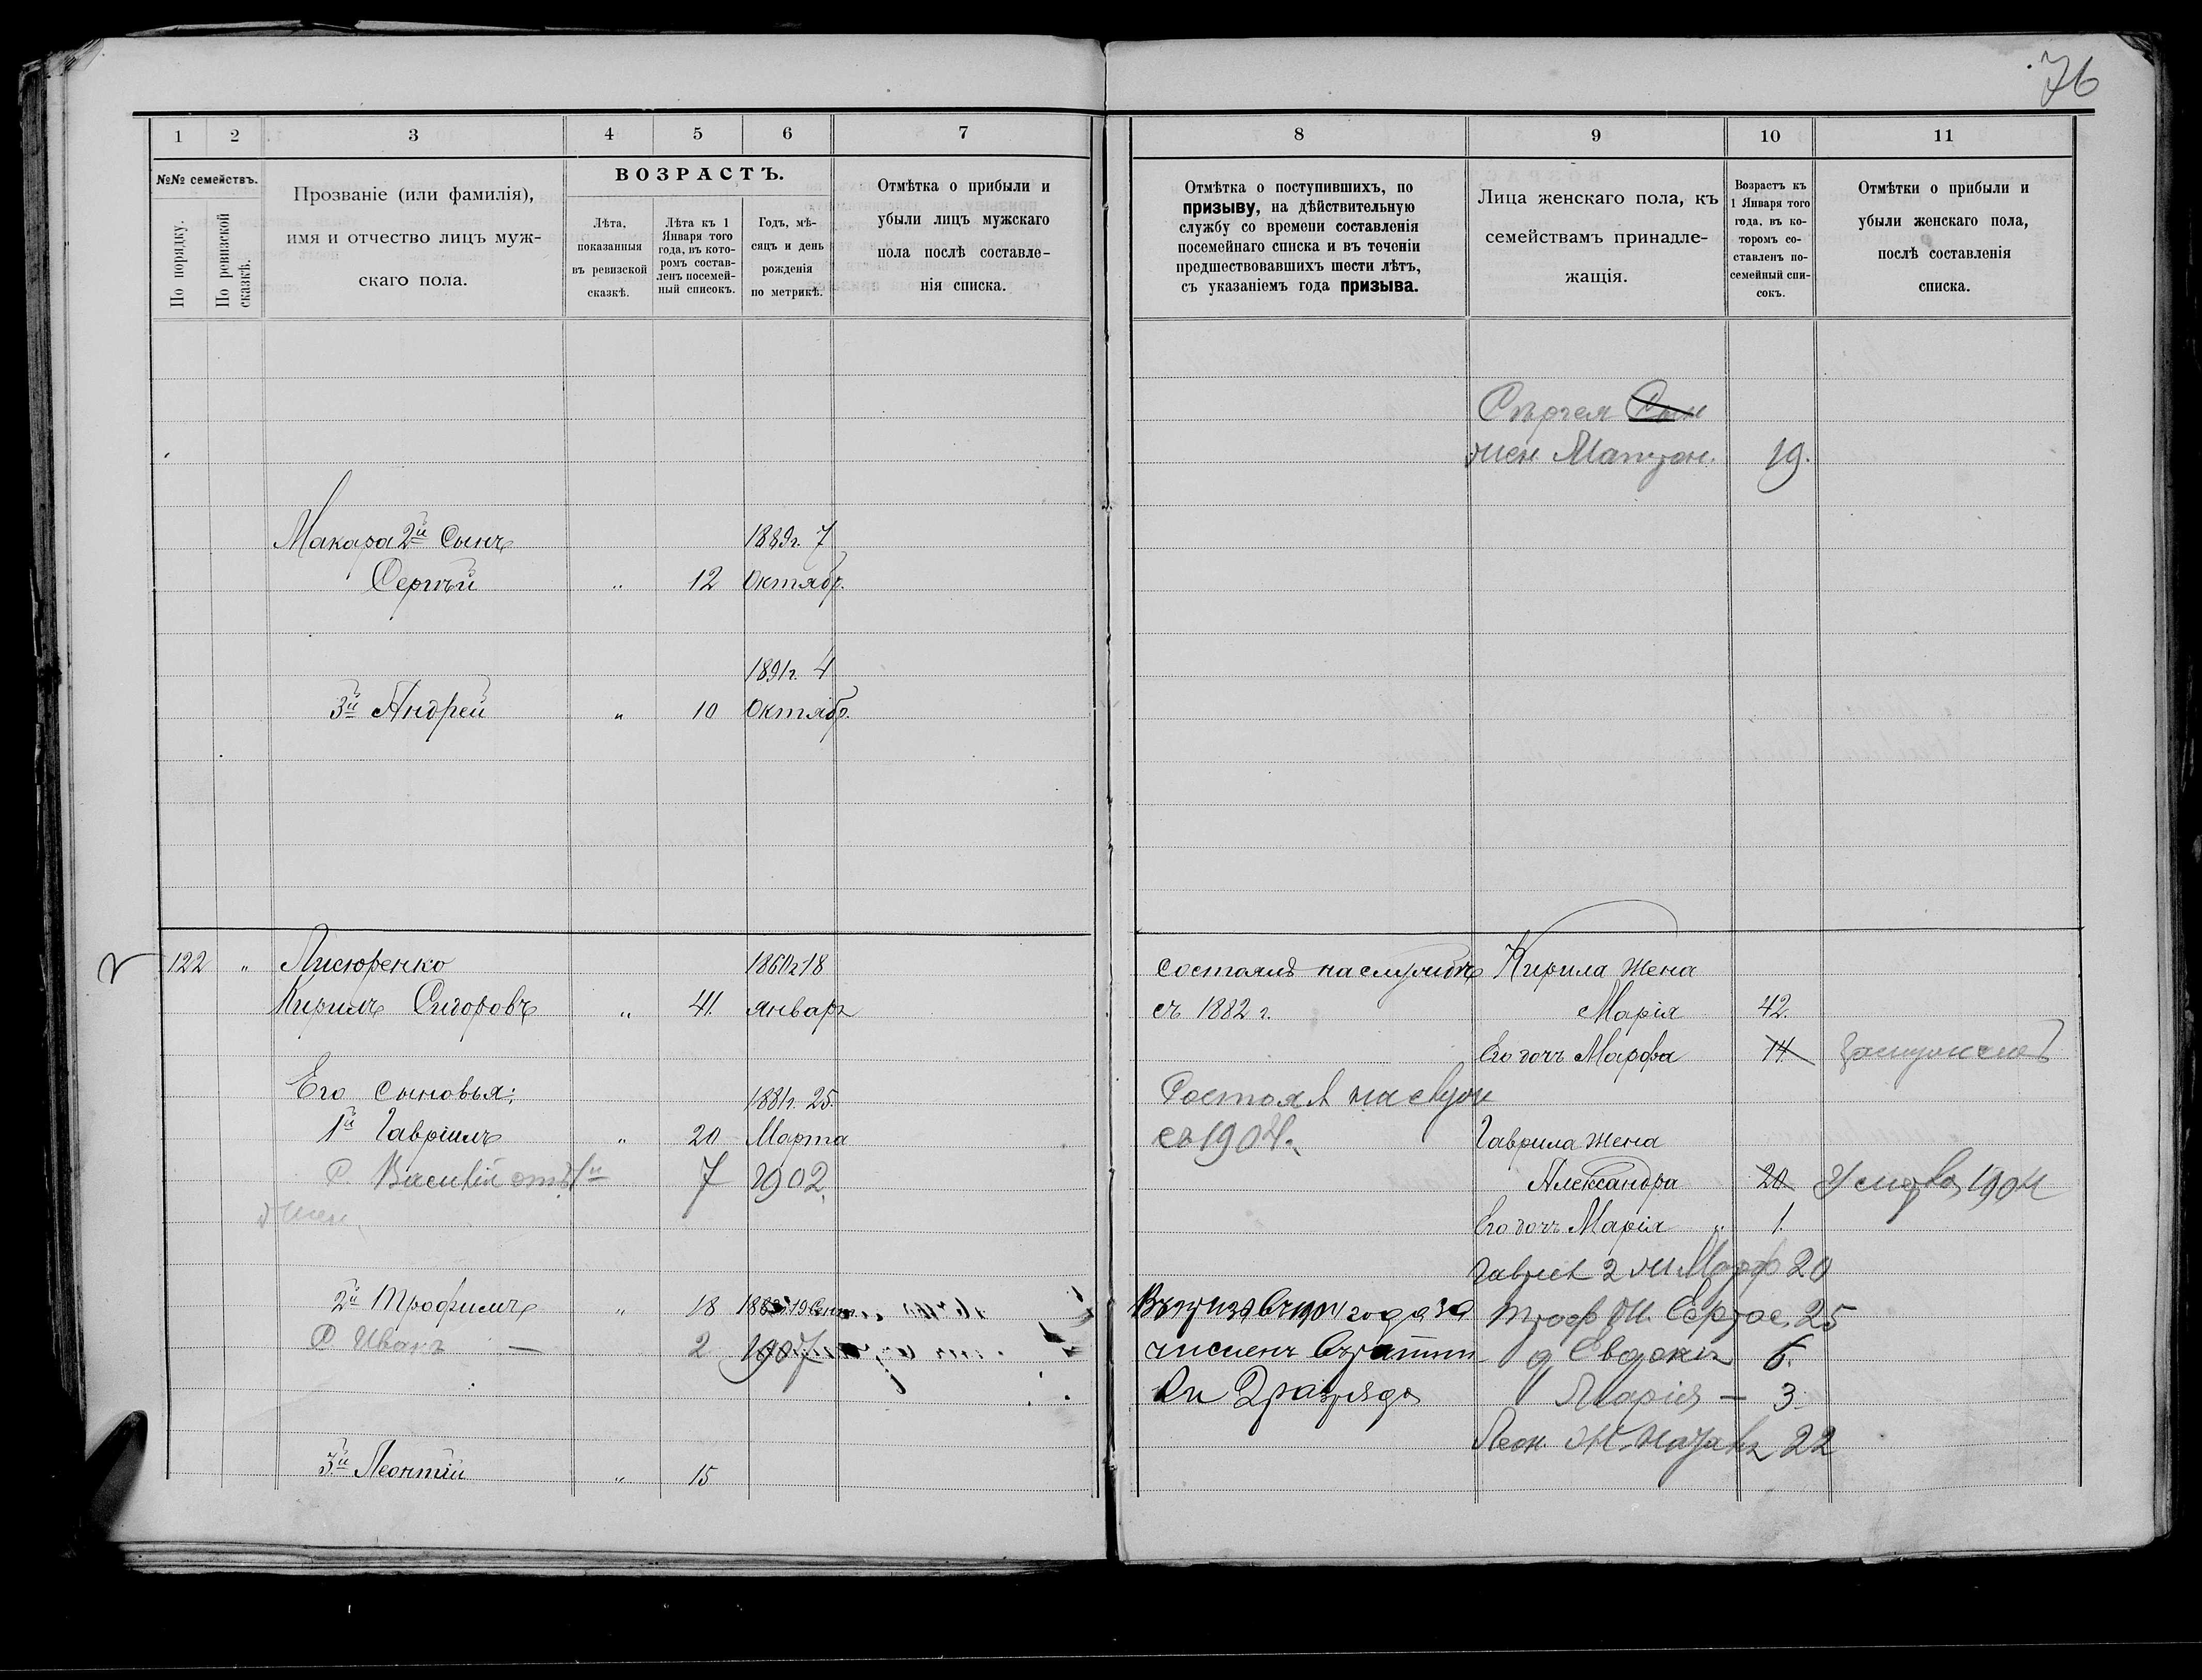 76
1
2
3
4
5
6
7
№№ семействъ.
По порядку.
По ревизской сказкѣ.
Прозваніе (или фамилія),
имя и отчество лицъ муж-
скаго пола.
ВОЗРАСТЪ.
Лѣта,
показанныя
въ ревизской
сказкѣ.
Лѣта къ 1
Января того
года, въ кото-
ромъ состав-
ленъ посемей-
ный списокъ.
Годъ, мѣ-
сяцъ и день
рожденія
по метрикѣ.
Отмѣтка о прибыли и
убыли лицъ мужскаго
пола послѣ составле-
нія списка.
Макара 2й Сынъ 1889г. 7
Сергѣй " 12 Октябр.
1891г. 4
3й Андрей " 10 Октябр.
122 " Лисюренко 1860г 18
Кирилъ Сидоровъ " 41. январь
Его сыновья: 1881г. 25.
1й Гавріилъ " 20 Марта
С. Василій отъ 1й 7 1902.
жен.
2й Трофимъ " 18
С Иванъ — 2 1907
3й Леонтій " 15
8
9
10
11
Отмѣтка о поступившихъ, по
призыву, на дѣйствительную
службу со времени составленія
посемейнаго списка и въ теченіи
предшествовавшихъ шести лѣтъ,
съ указаніемъ года призыва.
Лица женскаго пола, къ
семействамъ принадле-
жащія.
Возрастъ къ
1 Января того
года, въ ко-
торомъ со-
ставленъ по-
семейный спи-
сокъ.
Отмѣтки о прибыли и
убыли женскаго пола,
послѣ составленія
списка.
Сергея
жен 19.
состоялъ на службѣ Кирила жена
съ 1882 г. Марія 42.
Его дочь Марфа 14
Состоял на служ
съ 1904. Гаврила жена
Александра 20 1904
Его дочь Марія " 1.
Гаврил 2 ж Марф 20
1904 года за Троф ж. 25
численъ д Евдокія 6.
2 разряда Марія — 3.
Леон. ж. 22